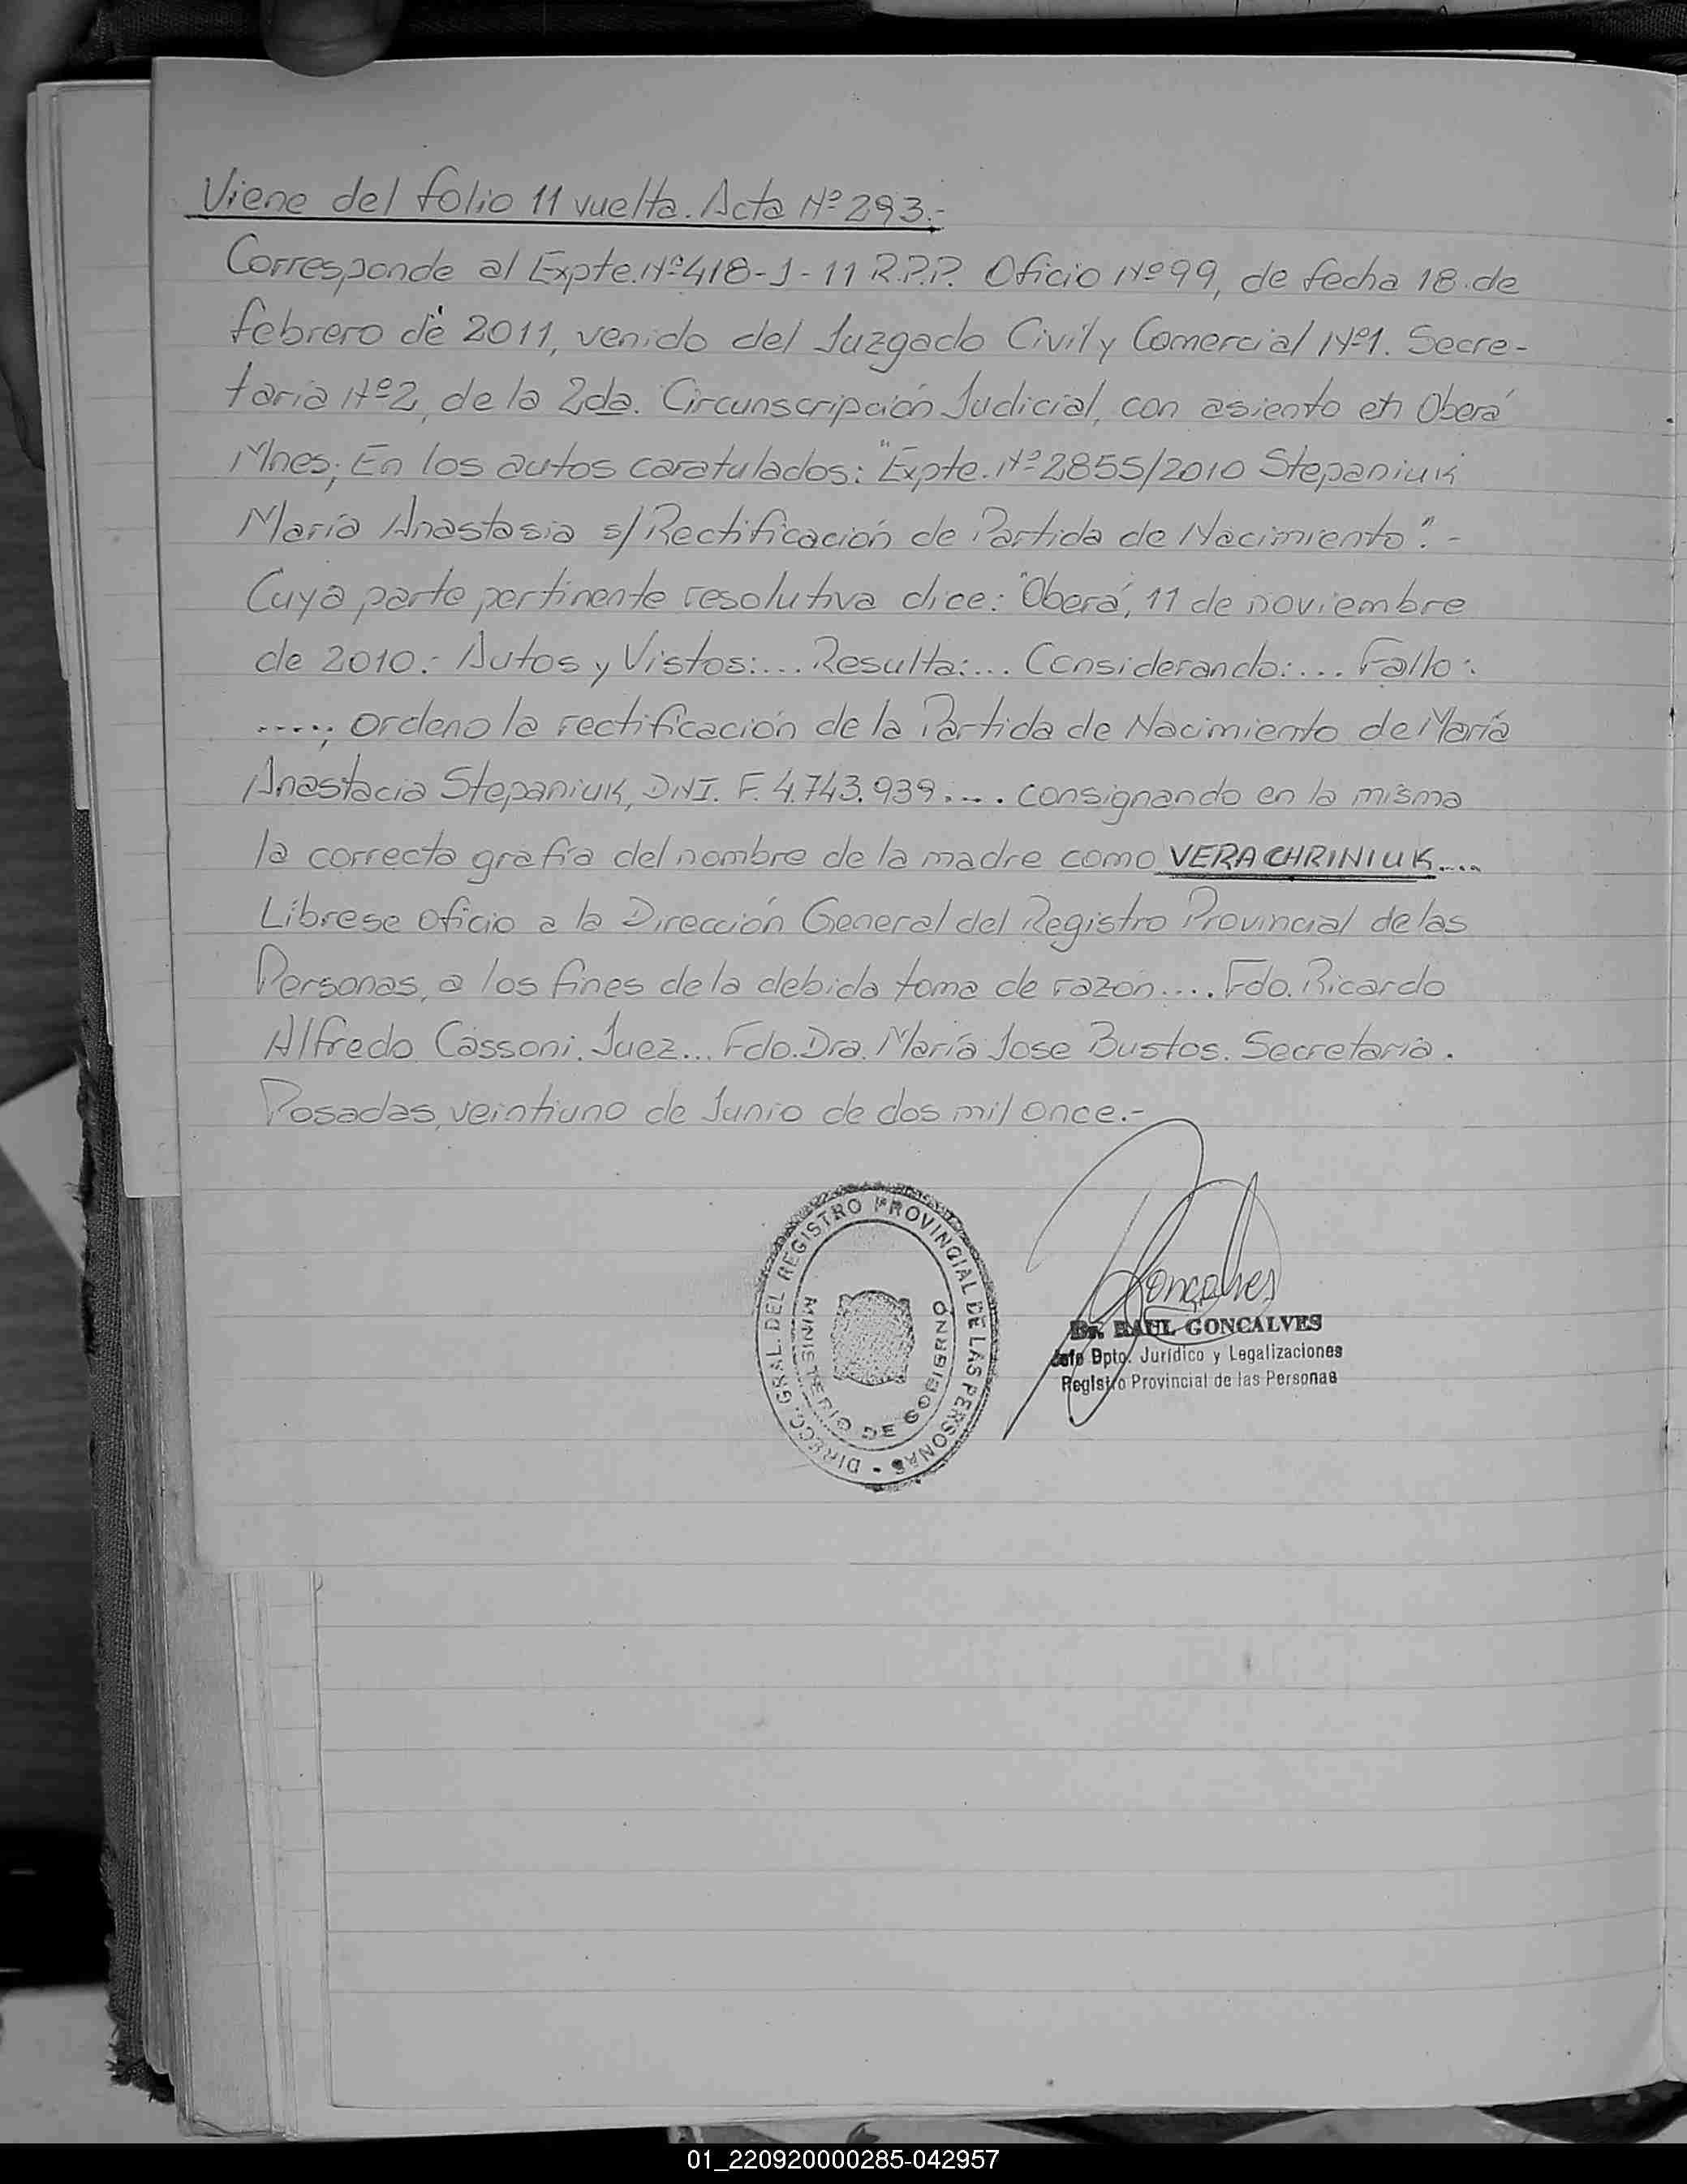 Viene del folio 11 vuelta. Acta Nº 293.-
Corresponde al Expte. Nº 418-J-11 R.P.P. Oficio Nº 99, de fecha 18 de
febrero de 2011, venido del Juzgado Civil y Comercial Nº1. Secre-
taria Nº2, de la 2da. Circunscripción Judicial, con asiento en Oberá
Mnes; En los autos caratulados: "Expte. Nº 2855/2010 Stepaniuk
María Anastasia s/Rectificación de Partida de Nacimiento".-
Cuya parte pertinente resolutiva dice: "Oberá, 11 de noviembre
de 2010.- Autos y Vistos:... Resulta:... Considerando:... Fallo:
....; ordeno la rectificación de la Partida de Nacimiento de María
Anastacia Stepaniuk, DNI. F. 4.743.939.... consignando en la misma
la correcta grafía del nombre de la madre como VERA CHRINIUK....
Líbrese oficio a la Dirección General del Registro Provincial de las
Personas, a los fines de la debida toma de razón.... Fdo. Ricardo
Alfredo Cassoni. Juez... Fdo. Dra. María Jose Bustos. Secretaria.
Posadas, veintiuno de Junio de dos mil once.-
DIRECC. GRAL. DEL REGISTRO PROVINCIAL DE LAS PERSONAS -
MINISTERIO DE GOBIERNO
Goncalves
Dr. RAUL GONCALVES
Jefe Dpto. Jurídico y Legalizaciones
Registro Provincial de las Personas
01_220920000285-042957